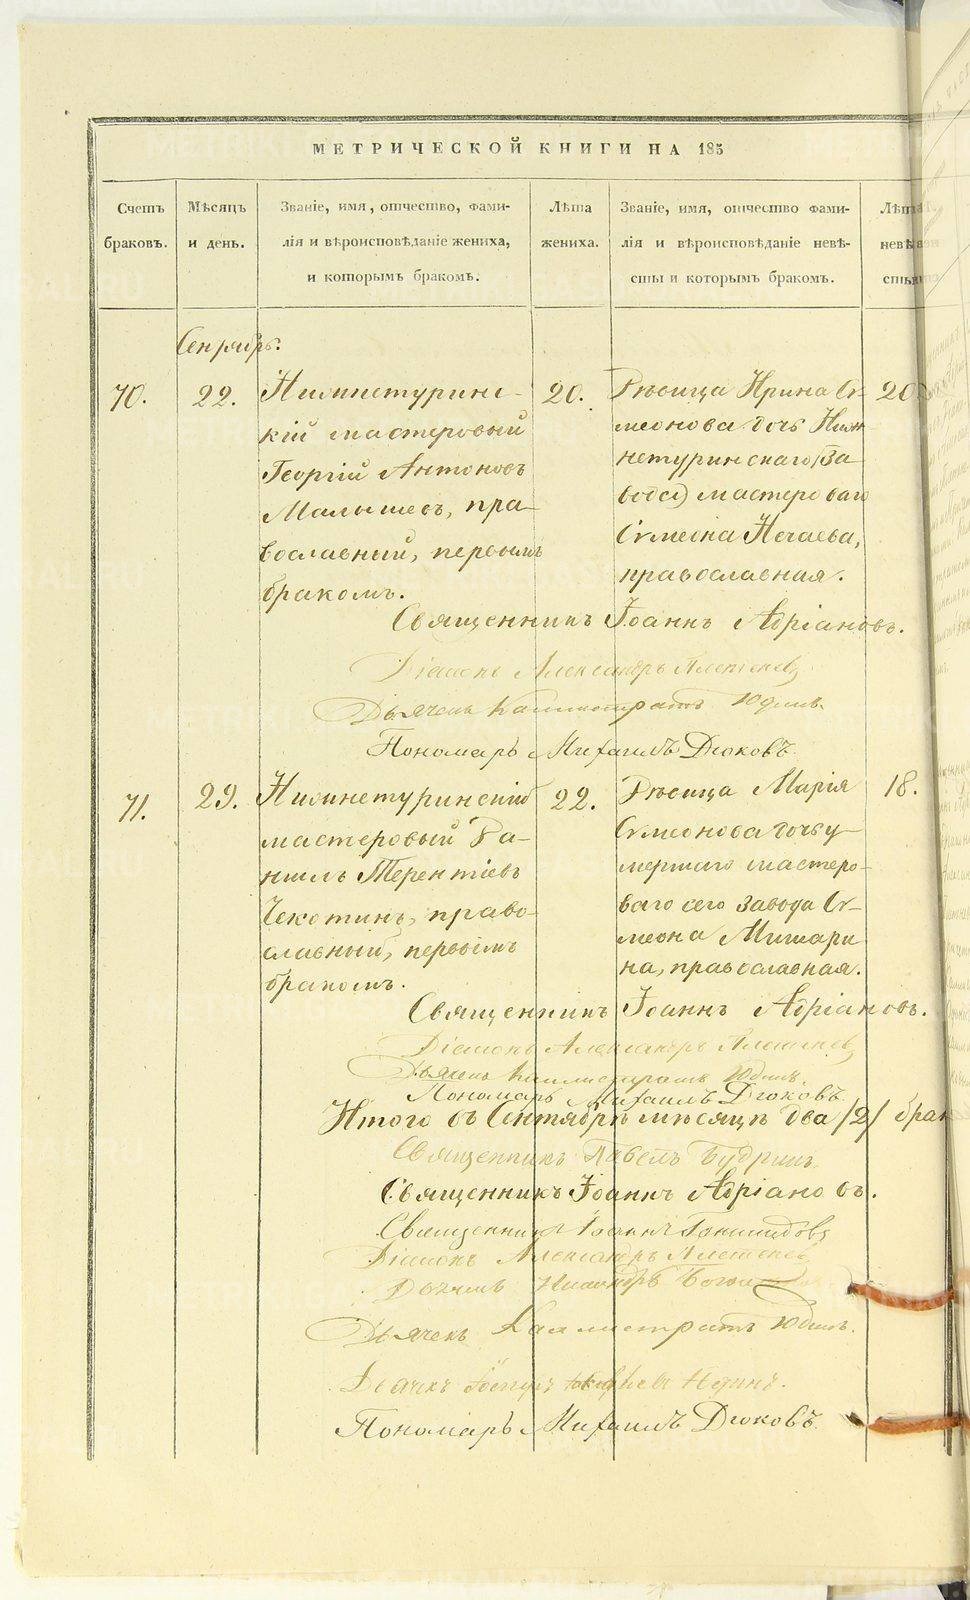 МЕТРИЧЕСКОЙ КНИГИ НА 185
Счетъ браковъ.
Мѣсяцъ и день.
Званіе, имя, отчество, фами-
лія и вѣроисповѣданіе жениха,
и которымъ бракомъ.
Лѣта жениха.
Званіе, имя, отчество фами-
лія и вѣроисповѣданіе невѣ-
сты и которымъ бракомъ.
Лѣта
невѣ
сты
Сентябрь.
70.
22.
Нижнетуринс-
кій мастеровый
Георгій Антоновъ
Малышевъ, пра-
вославный, первымъ
бракомъ.
20.
Дѣвица Ирина Си-
меонова дочь Ниж-
нетуринскаго За
вода мастероваго
Симеона Нечаева,
православная.
20
Священникъ Іоаннъ Адріановъ.
Діаконъ Александръ
Дьячекъ Каллистратъ Юдинъ.
Пономарь Михаилъ Дюковъ.
71.
29.
Нижнетуринскій
мастеровый Да-
ниилъ Терентіевъ
Чекотинъ, право-
славный, первымъ
бракомъ.
22.
Дѣвица Марія
Симеонова дочь у-
мершаго мастеро-
ваго сего завода Си-
меона Мишари
на, православная.
18.
Священникъ Іоаннъ Адріановъ.
Діаконъ Александръ
Дьячекъ Каллистратъ Юдинъ.
Пономарь Михаилъ Дюковъ.
Итого въ Сентябрѣ мѣсяцѣ два /2/ брак
Священникъ Павелъ Будринъ.
Священникъ Іоаннъ Адріановъ.
Священникъ Іоаннъ
Діаконъ Александръ
Дьячекъ Каллистратъ Юдинъ.
Дьячекъ
Пономарь Михаилъ Дюковъ.